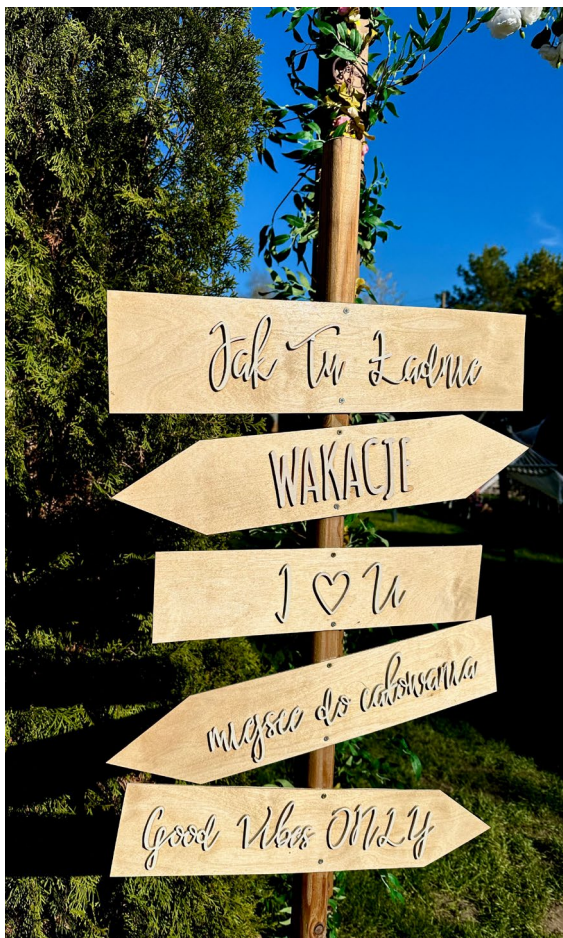 Jak Tu Ładnie
WAKACJE
I ♡ U
miejsce do całowania
Good Vibes ONLY